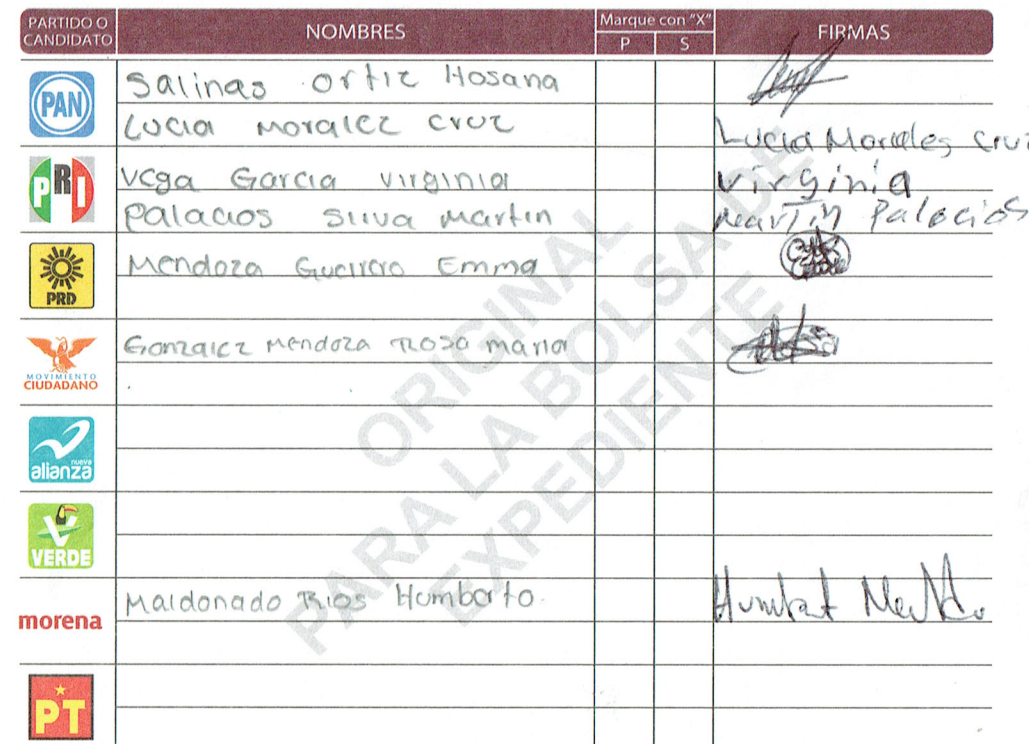 PARTIDO O CANDIDATO NOMBRES Marque con "X" P S FIRMAS
PAN Salinas Ortiz Hosana
Lucia Moralez Cruz Lucia Morales Cruz
PRI Vega Garcia Virginia Virginia
Palacios Silva Martin Martin Palacios
PRD Mendoza Guerrero Emma
MOVIMIENTO CIUDADANO Gonzalez Mendoza Rosa Maria
nueva alianza
VERDE
morena Maldonado Rios Humberto
PT
ORIGINAL
PARA LA BOLSA DE
EXPEDIENTE